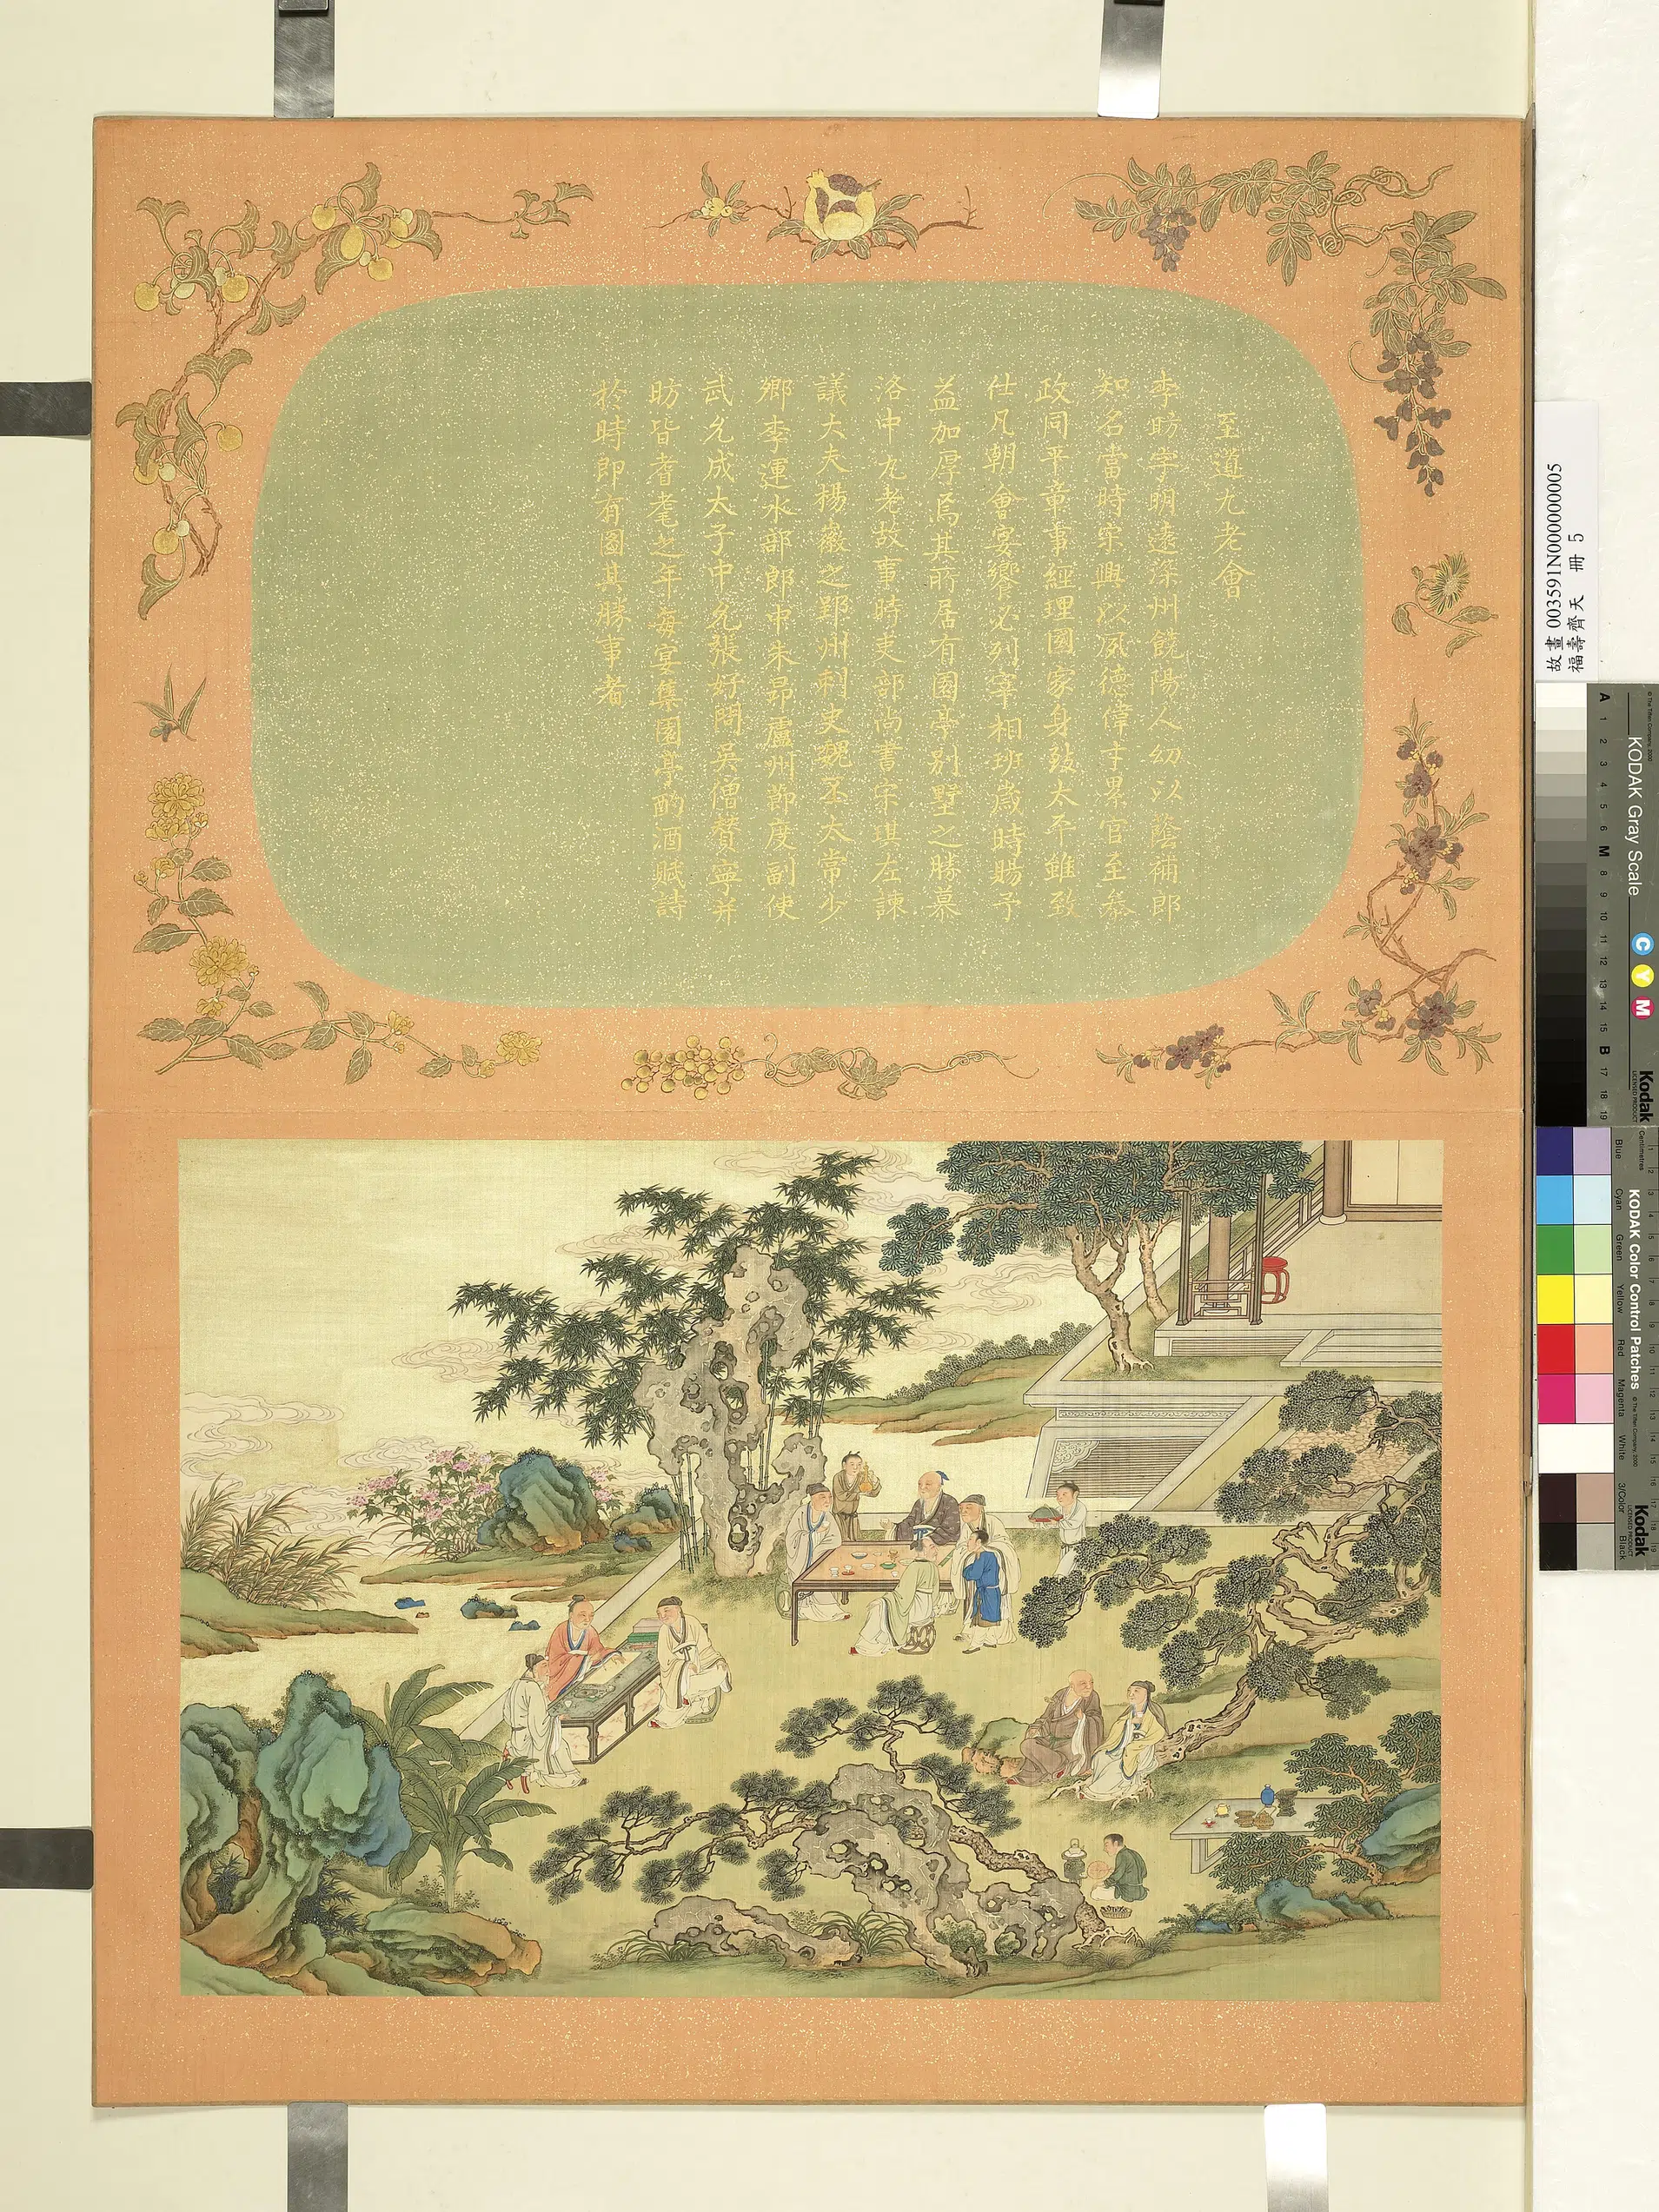 至道九老會
李昉字明遠深州饒陽人幼以蔭補郎
知名當時宋興以夙德偉才累官至叅
政同平章事經理國家身致太平雖致
仕凡朝會宴饗必列宰相班歲時賜予
益加厚焉其所居有園亭别墅之勝慕
洛中九老故事時吏部尚書宋琪左諫
議大夫楊徽之郢州刺史魏丕太常少
卿李運水部郎中朱昻廬州節度副使
武允成太子中允張好問吳僧贊寧并
昉皆耆耄之年每宴集園亭酌酒賦詩
於時即有圖其勝事者
故畫 003591N000000005
福壽齊天 冊 5
KODAK Gray Scale
© The Tiffen Company, 2000
Kodak
LICENSED PRODUCT
C Y M
A 1 2 3 4 5 6 M 8 9 10 11 12 13 14 15 B 17 18 19
KODAK Color Control Patches
© The Tiffen Company, 2000
Kodak
LICENSED PRODUCT
Centimetres
Blue Cyan Green Yellow Red Magenta White 3/Color Black